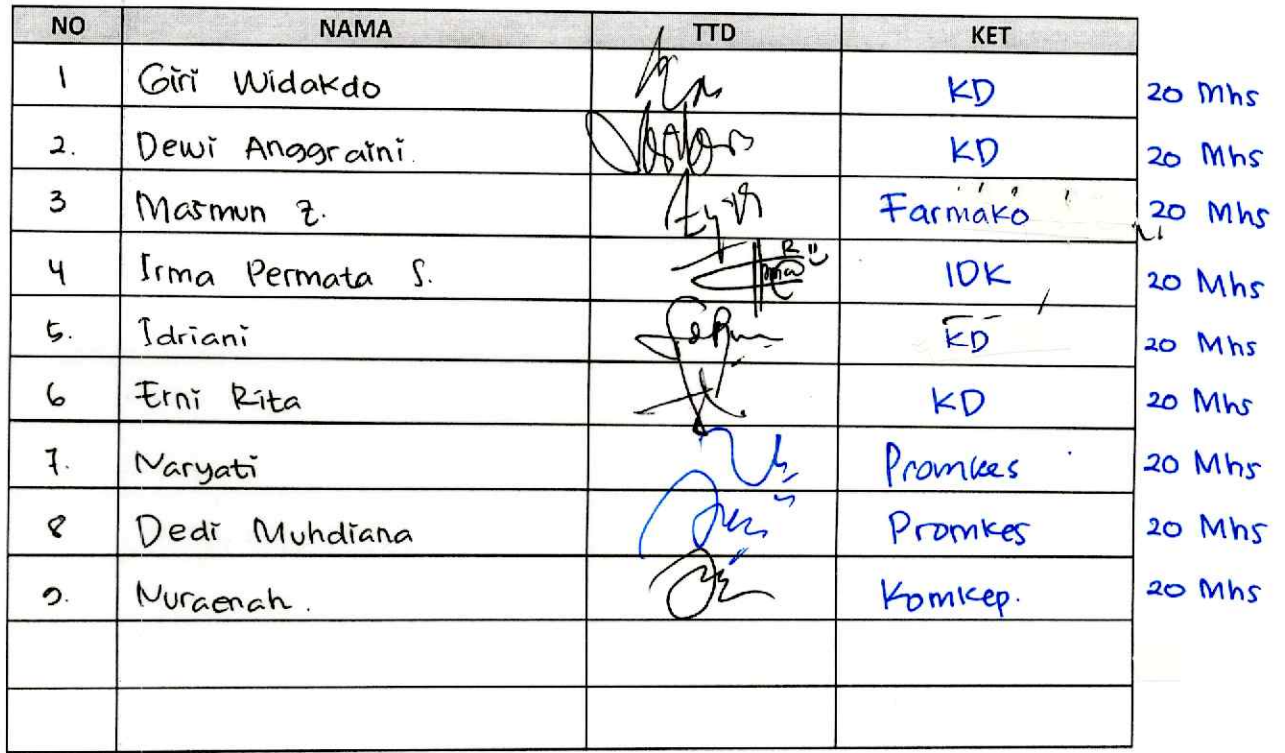 NO NAMA TTD KET
1 Giri Widakdo KD 20 Mhs
2. Dewi Anggraini KD 20 Mhs
3 Masmun Z. Farmako 20 Mhs
4 Irma Permata S. IDK 20 Mhs
5. Idriani KD 20 Mhs
6 Erni Rita KD 20 Mhs
7. Naryati Promkes 20 Mhs
8 Dedi Muhdiana Promkes 20 Mhs
9. Nuraenah. Komkep. 20 Mhs